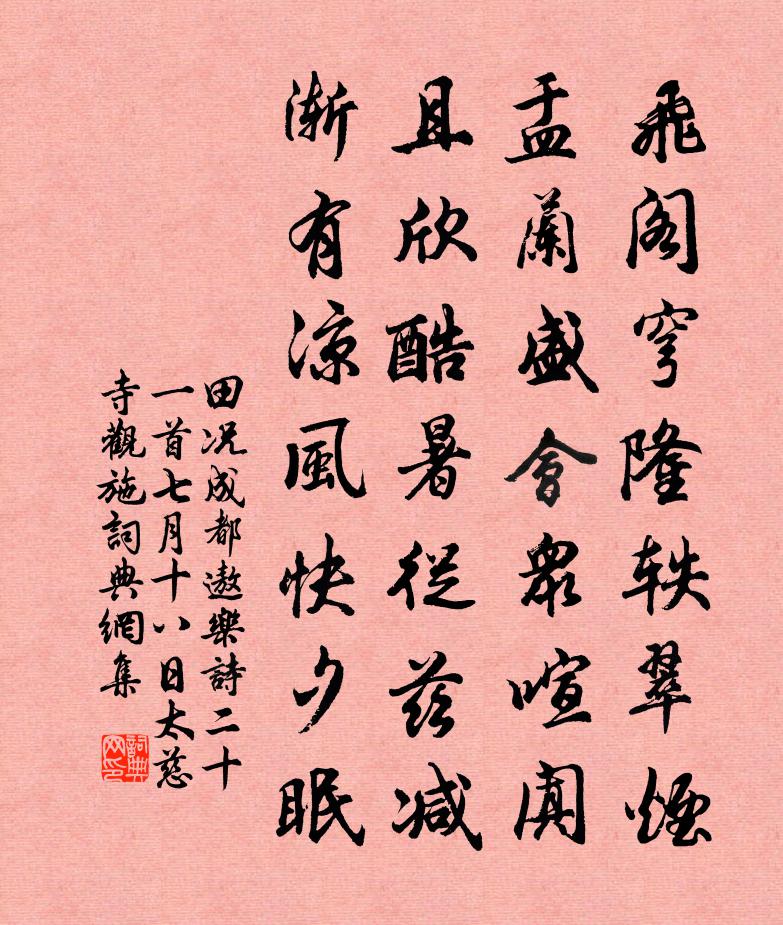 飛閣穹隆軼翠煙
盂蘭盛會眾喧闐
且欣酷暑從茲減
漸有涼風快夕眠
田况成都遨樂詩二十
一首七月十八日太慈
寺觀施詞典網集
詞典网印